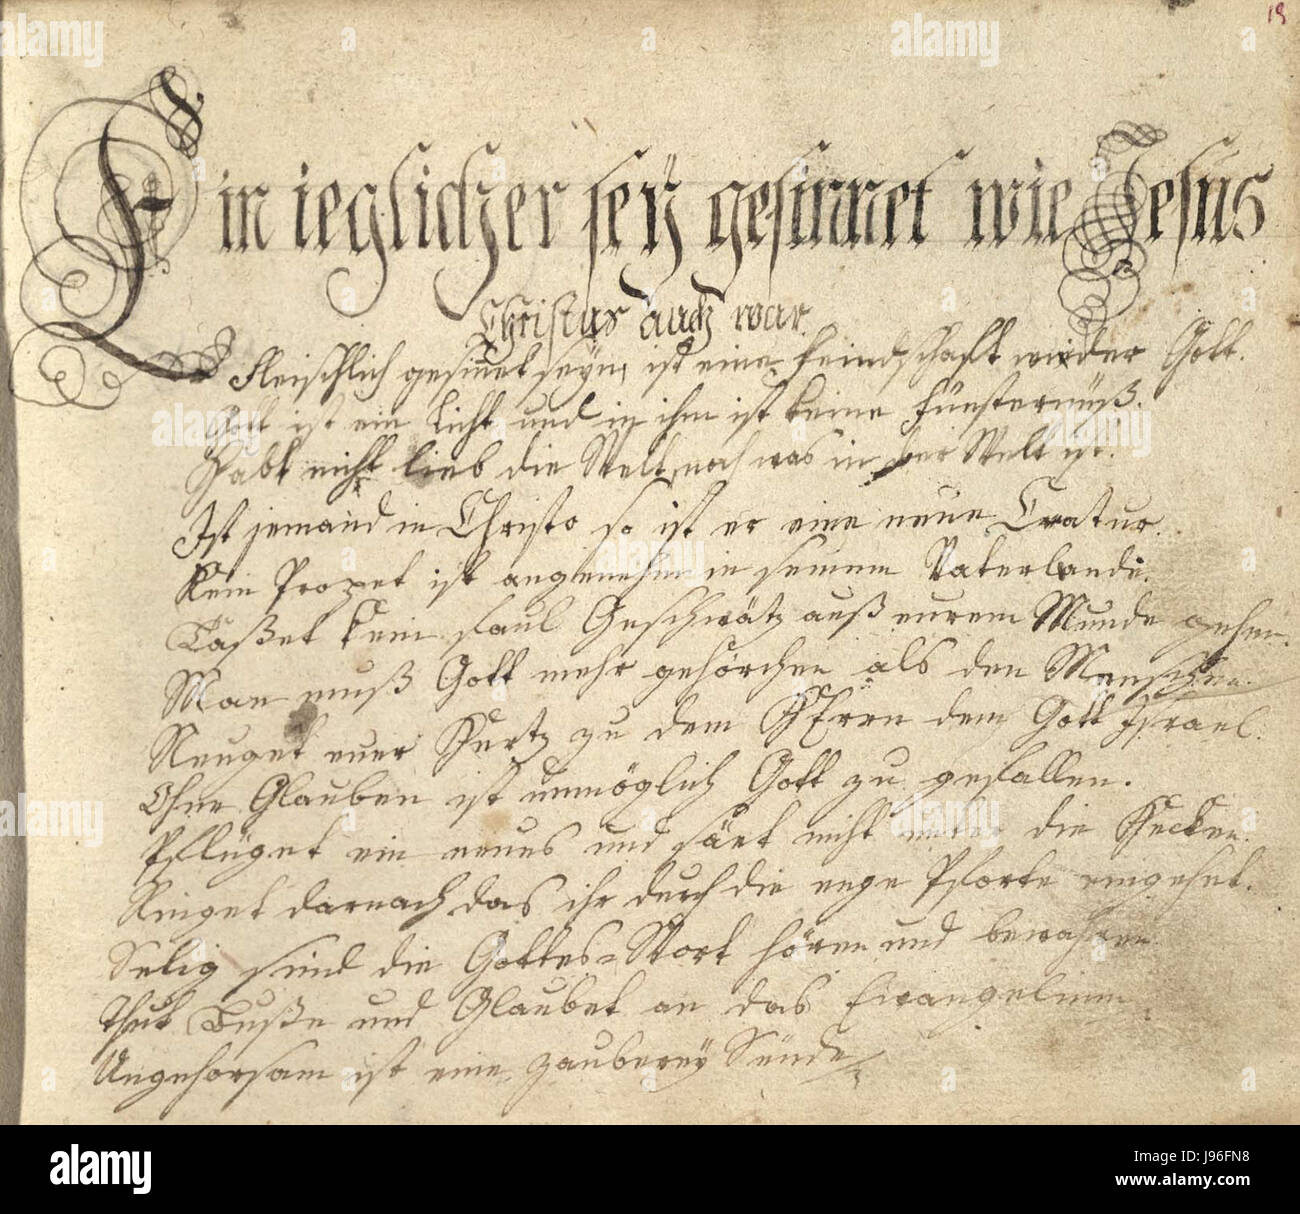 19
Ein ieglicher seÿ gesinnet wie Jesus
Christus auch war.
Fleischlich gesinnet seyn, ist eine feindschafft wieder Gott.
Gott ist ein Licht und in ihm ist keine Fünsternüß.
Habt nicht lieb die Welt, noch was in der Welt ist.
Ist jemand in Christo so ist er eine neue Creatur.
Kein Prophet ist angenehm in seinem Vaterlande.
Laßet kein faul Geschwätz auß eurem Munde gehen.
Man muß Gott mehr gehorchen als den Menschen.
Neuget euer Hertz zu dem HErrn dem Gott Israel.
Ohne Glauben ist unmöglich Gott zu gefallen.
Pflüget ein neues und säet nicht unter die Hecken.
Ringet darnach das ihr durch die enge Pforte eingehet.
Selig sind die Gottes-Wort hören und bewahren
Thut Buße und Glaubet an das Evangelium
Ungehorsam ist eine Zauberey Sünde
alamy
Image ID: J96FN8
www.alamy.com